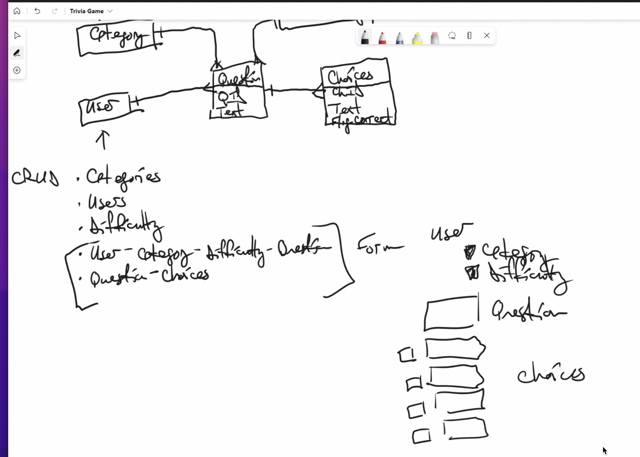 Trivia Game
Category
Question
QID
Text
Choices
ChID
Text
User
CRUD
• Categories
• Users
• Difficulty
• User - Category - Difficulty - Question
• Question - Choices
Form
User
Category
Difficulty
Question
Choices